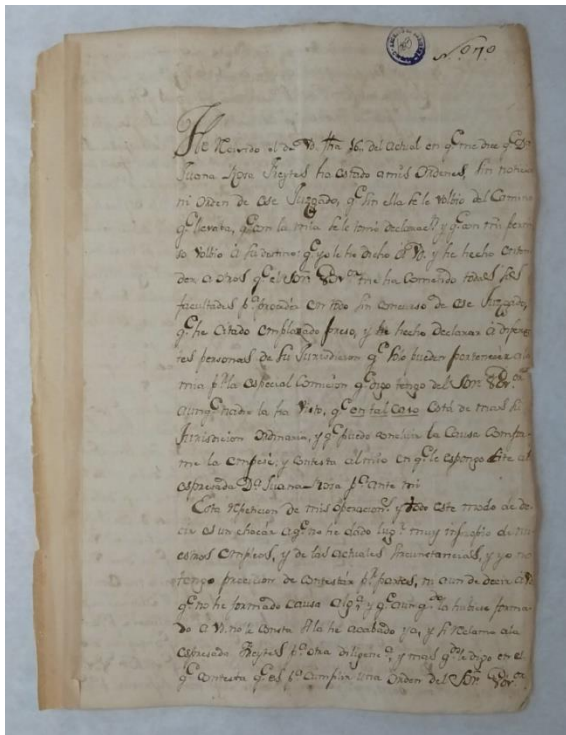 N.º 17º
He recivido el de Vd. fha 16. del actual en q.e me dice q.e D.a
Juana Rosa Reytes ha estado a mis Ordenes, sin noticia
ni Orden de ese Juzgado, q.e sin ella se le volvio del Camino
q.e llevava, q.e con la mia se le tomó declaracn y q.e con mi permi-
so volvio á su destino: q.e yo le he dicho á Vd. y he hecho enten-
der a otros q.e el Sor. Gov.or me ha Comunicado todas sus
facultades p.a proceder en todo sin concurso de ese Juzgado,
q.e he citado emplazado preso, y he hecho declarar á diferen-
tes personas de su Jurisdicion q.e solo pueden pertenecer á la
mia p.r la especial Comicion q.e digo tengo del Sor. Gov.or
aunq.e nadie la ha visto, q.e en tal caso está de mas su
Jurisdicion Ordinaria, y q.e puedo concluir la Causa Confor-
me la empese, y contesta al mio en q.e le espongo cite a la
espresada D.a Juana Rosa p.a ante mi
Esta repeticion de mis operacion.s y todo este modo de de-
cir es un chocar a q.e no he dado lug.r muy impropio de nu-
estros empleos, y de las actuales circunstancias, y yo no
tengo precision de contestar p.r partes, ni aun de decir a Vd.
q.e no he formado causa alg.a y q.e aunq.e la hubiese forma-
do a Vd. no le consta si la he acabado ya, y si reclamo a la
espresada Reytes p.a otra diligenc.a y mas q.e le digo en el
q.e contesta q.e es p.a cumplir una Orden del Sor. Gov.or